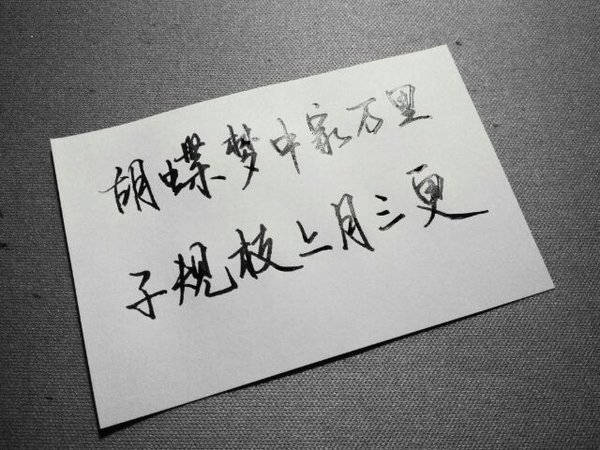 胡蝶梦中家万里
子规枝上月三更